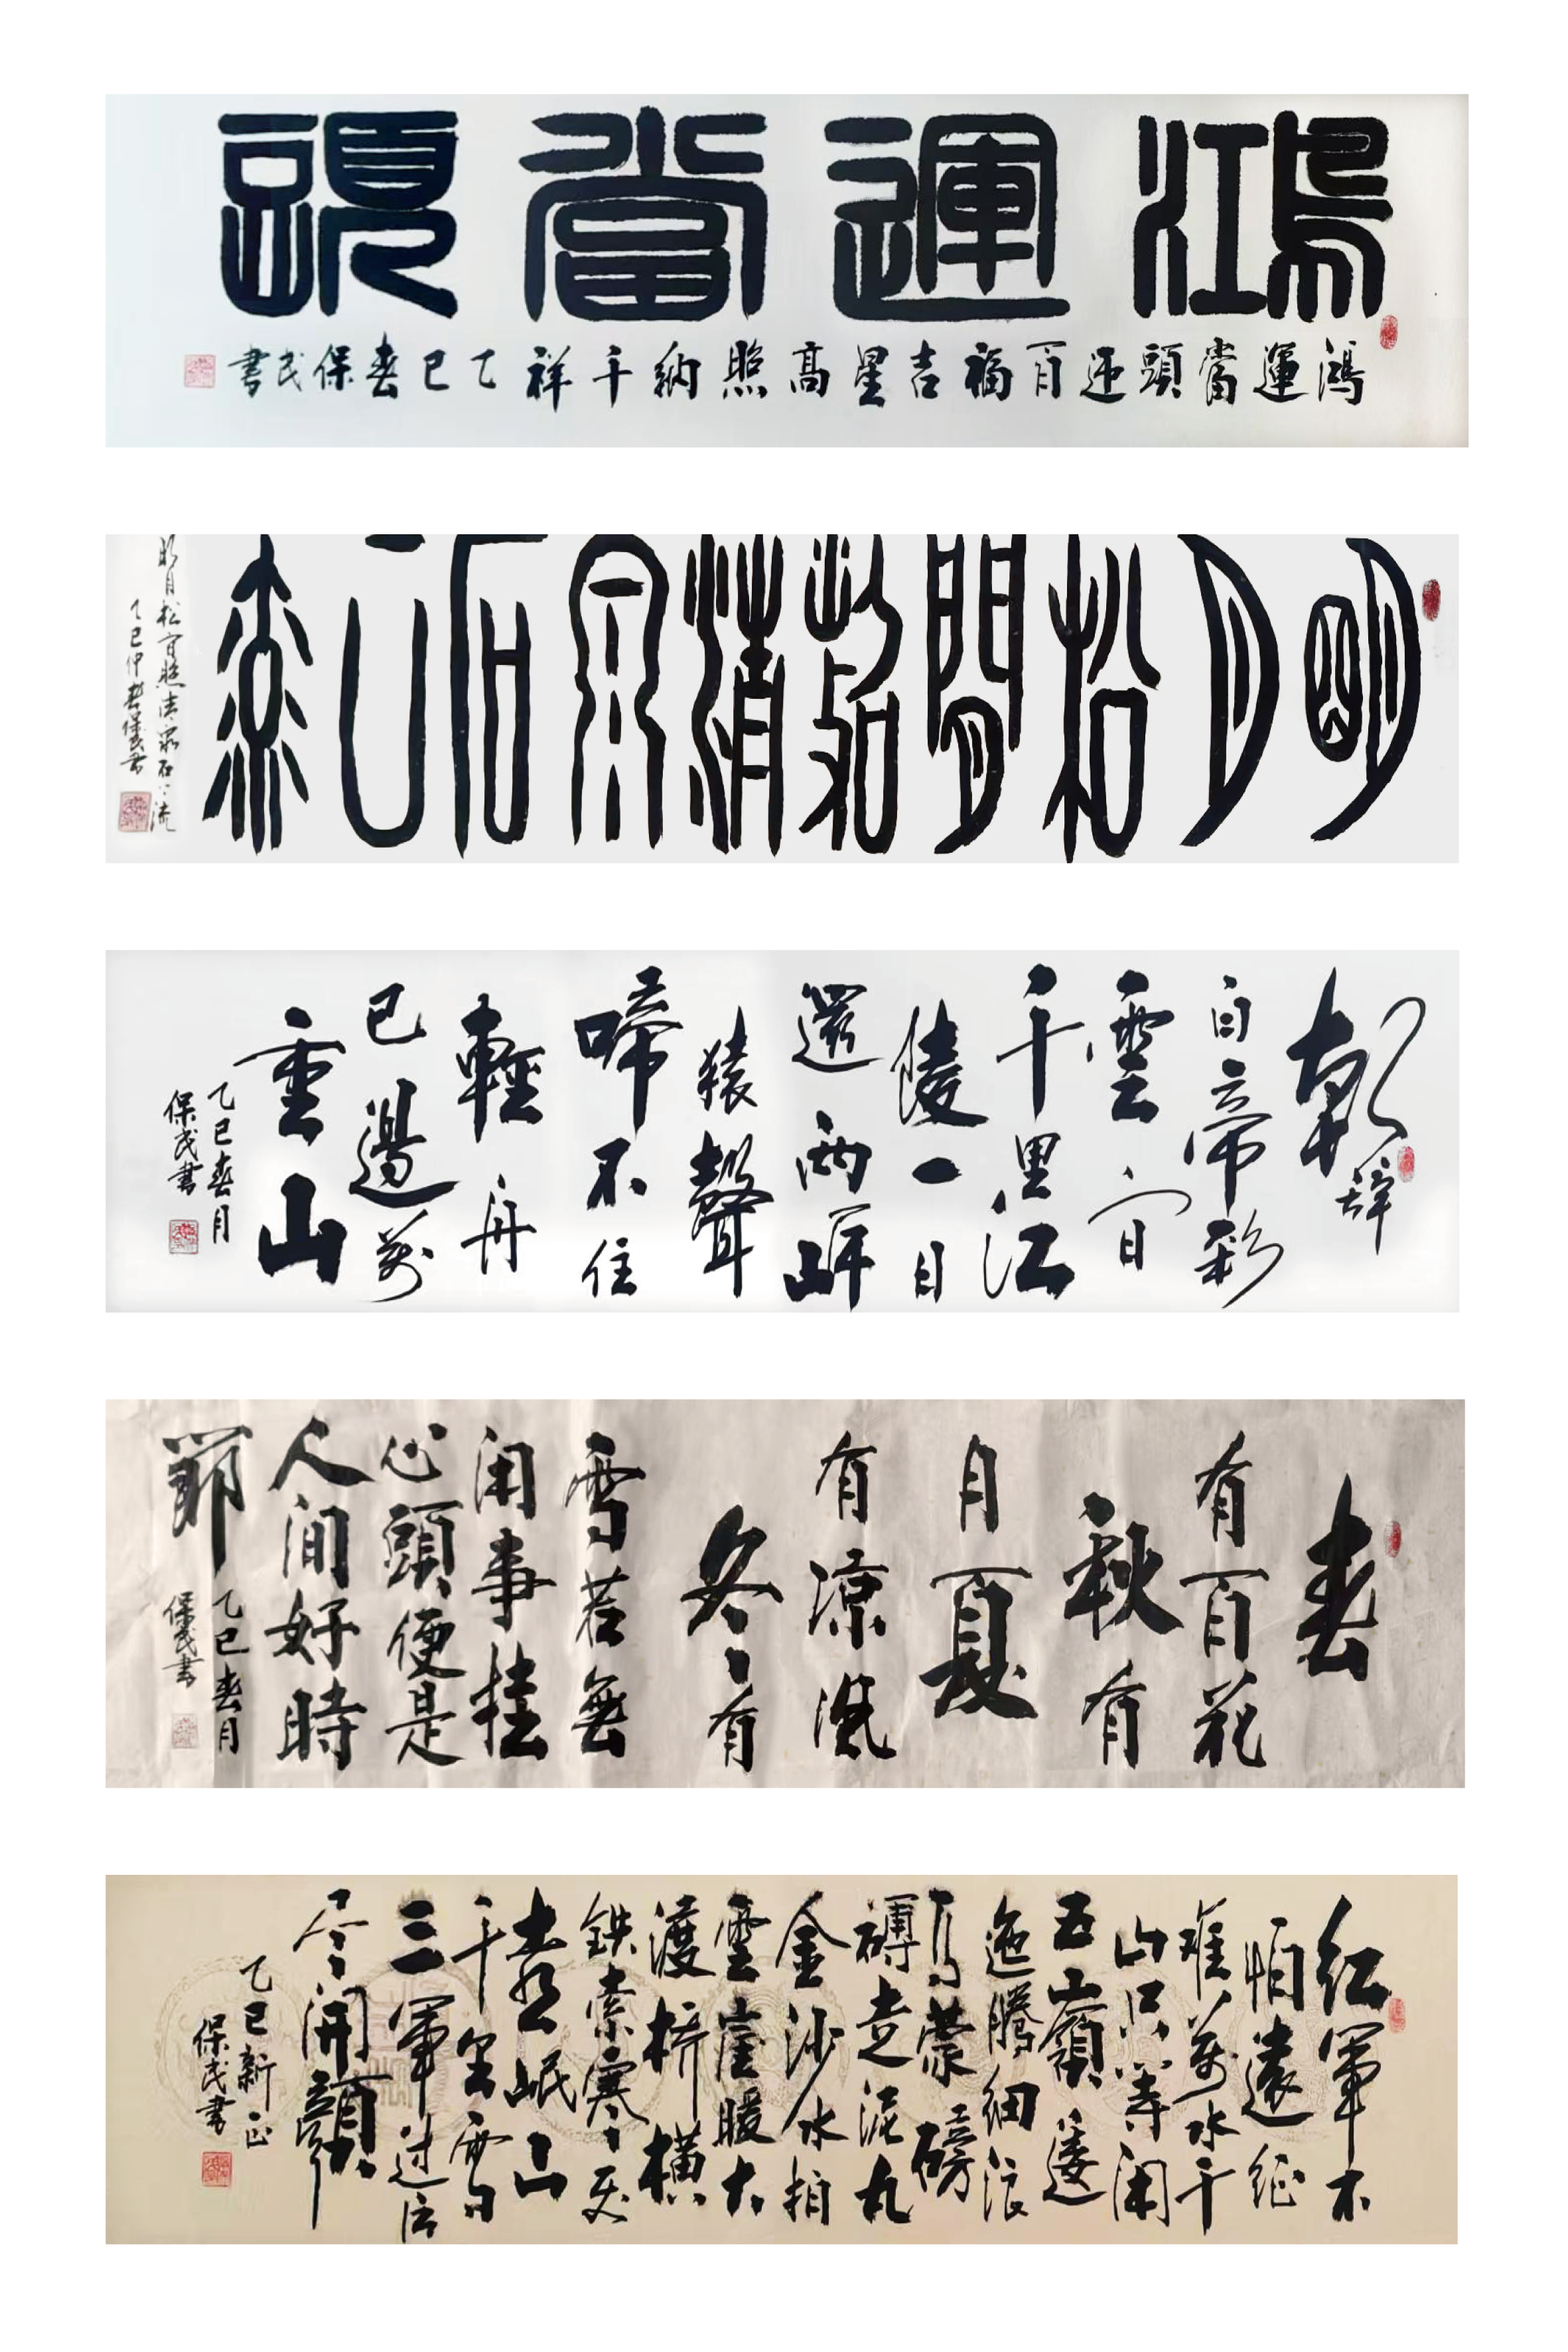 鴻運當頭
鴻運當頭迎百福吉星高照納千祥乙巳春保民書
明月松間照清泉石上流
明月松間照清泉石上流
乙巳仲春保民書
朝辭
白帝彩
雲間
千里江
陵一日
還兩岸
猿聲
啼不住
輕舟
已過萬
重山
乙巳春月
保民書
春
有百花
秋有
月夏
有涼風
冬有
雪若無
闲事挂
心頭便是
人间好時
節
乙巳春月
保民書
红軍不
怕遠征
難萬水千
山只等闲
五嶺逶
迤騰細浪
烏蒙磅
礴走泥丸
金沙水拍
雲崖暖大
渡桥橫
鉄索寒更
喜岷山
千里雪
三軍过后
尽開顏
乙巳新正
保民書